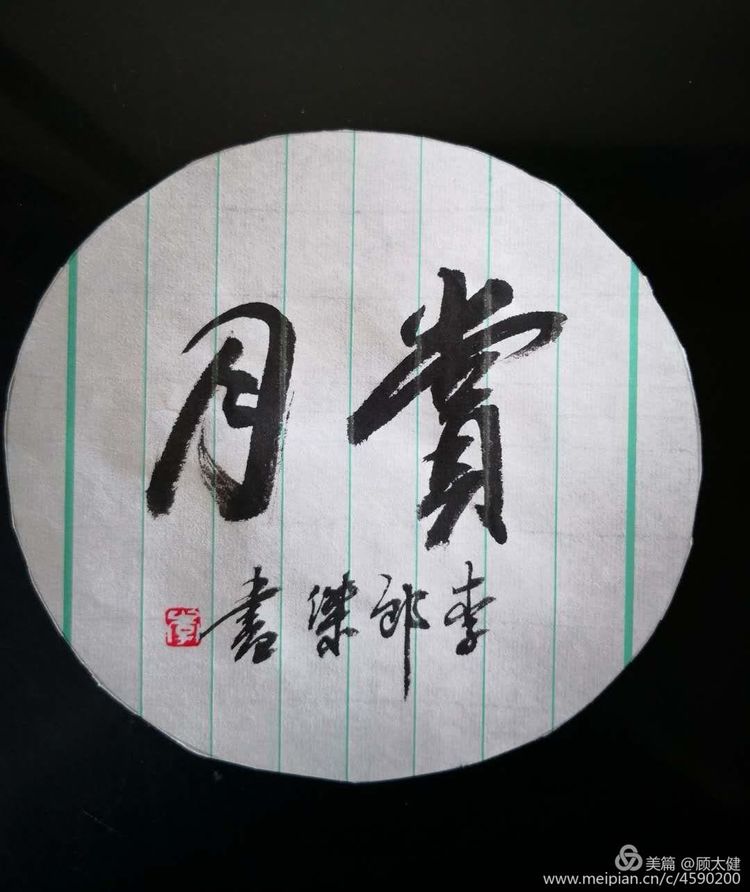 賞月
李郎傑書
李
美篇 @顾太健
www.meipian.cn/c/4590200